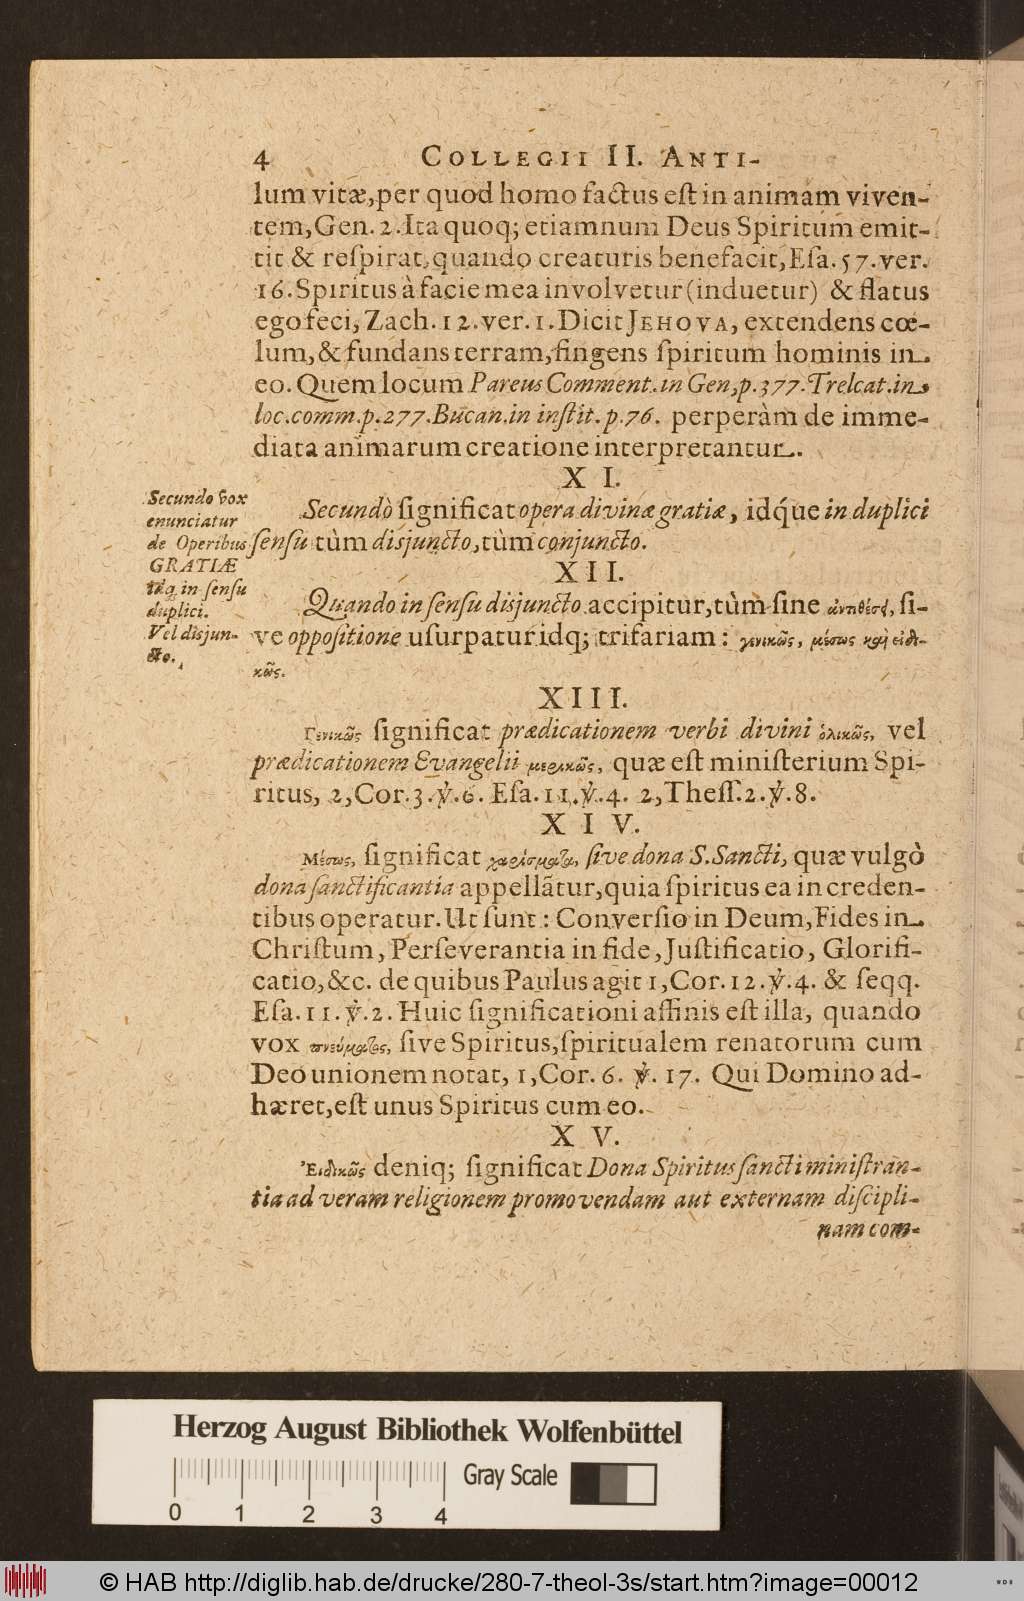 4 COLLEGII II. ANTI-
lum vitæ, per quod homo factus eſt in animam viven-
tem, Gen. 2. Ita quoq; etiamnum Deus Spiritum emit-
tit & reſpirat, quando creaturis benefacit, Eſa. 57. ver.
16. Spiritus à facie mea involvetur (induetur) & flatus
ego feci, Zach. 12. ver. 1. Dicit JEHOVA, extendens cœ-
lum, & fundans terram, fingens ſpiritum hominis in
eo. Quem locum Pareus Comment. in Gen, p. 377. Trelcat. in
loc. comm. p. 277. Bucan. in inſtit. p. 76. perperàm de imme-
diata animarum creatione interpretantur.
XI.
Secundo vox
enunciatur
de Operibus
GRATIÆ
idq, in ſenſu
duplici.
Vel disjun-
cto.
Secundò ſignificat opera divinæ gratiæ, idq́ue in duplici
ſenſu tùm disjuncto, tùm conjuncto.
XII.
Quando in ſenſu disjuncto accipitur, tùm ſine ἀντιθέσει, ſi-
ve oppoſitione uſurpatur idq; trifariam: γενικῶς, μέσως καὶ εἰδι-
κῶς.
XIII.
Γενικῶς ſignificat prædicationem verbi divini ὁλικῶς, vel
prædicationem Evangelii μερικῶς, quæ eſt miniſterium Spi-
ritus, 2, Cor. 3. ℣. 6. Eſa. 11. ℣. 4. 2, Theſſ. 2. ℣. 8.
XIV.
Μέσως, ſignificat χαρίσματα, ſive dona S. Sancti, quæ vulgò
dona ſanctificantia appellãtur, quia ſpiritus ea in creden-
tibus operatur. Ut ſunt: Converſio in Deum, Fides in
Chriſtum, Perſeverantia in fide, Juſtificatio, Glorifi-
catio, &c. de quibus Paulus agit 1, Cor. 12. ℣. 4. & ſeqq.
Eſa. 11. ℣. 2. Huic ſignificationi affinis eſt illa, quando
vox πνεύματος, ſive Spiritus, ſpiritualem renatorum cum
Deo unionem notat, 1, Cor. 6. ℣. 17. Qui Domino ad-
hæret, eſt unus Spiritus cum eo.
XV.
Ἐιδικῶς deniq; ſignificat Dona Spiritus ſancti miniſtran-
tia ad veram religionem promovendam aut externam diſcipli-
nam com-
Herzog August Bibliothek Wolfenbüttel
Gray Scale
0 1 2 3 4
© HAB http://diglib.hab.de/drucke/280-7-theol-3s/start.htm?image=00012